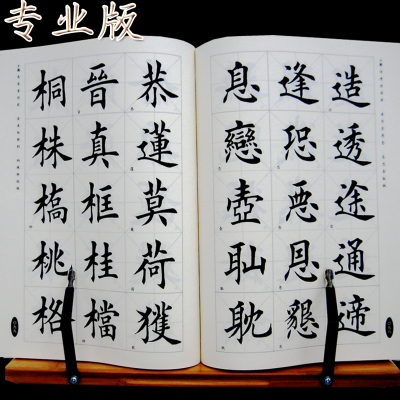 专业版
造透途通遆
逢恐悪恩懇
息戀壺耻耽
恭蓮莫荷獲
晉真框桂檔
桐株槁桃格